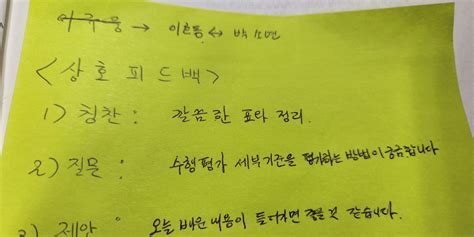 이주웅 → 이흐름 ↔ 박소연
<상호 피드백>
1) 칭찬 : 깔끔한 표와 정리.
2) 질문 : 수행평가 세부기준을 평가하는 방법이 궁금합니다
3) 제안 : 오늘 배운 내용이 들어가면 좋을 것 같습니다.